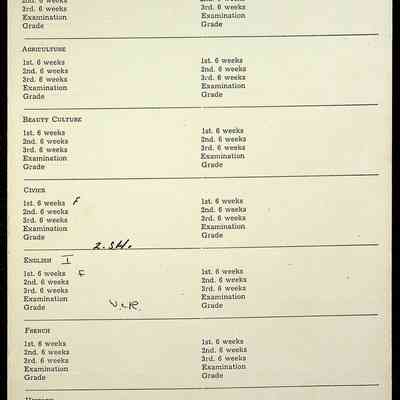 2nd. 6 weeks 2nd. 6 weeks
3rd. 6 weeks 3rd. 6 weeks
Examination Examination
Grade Grade
AGRICULTURE
1st. 6 weeks 1st. 6 weeks
2nd. 6 weeks 2nd. 6 weeks
3rd. 6 weeks 3rd. 6 weeks
Examination Examination
Grade Grade
BEAUTY CULTURE
1st. 6 weeks 1st. 6 weeks
2nd. 6 weeks 2nd. 6 weeks
3rd. 6 weeks 3rd. 6 weeks
Examination Examination
Grade Grade
CIVICS
1st. 6 weeks F 1st. 6 weeks
2nd. 6 weeks 2nd. 6 weeks
3rd. 6 weeks 3rd. 6 weeks
Examination Examination
Grade Grade
ENGLISH I
1st. 6 weeks F 1st. 6 weeks
2nd. 6 weeks 2nd. 6 weeks
3rd. 6 weeks 3rd. 6 weeks
Examination Examination
Grade Grade
FRENCH
1st. 6 weeks 1st. 6 weeks
2nd. 6 weeks 2nd. 6 weeks
3rd. 6 weeks 3rd. 6 weeks
Examination Examination
Grade Grade